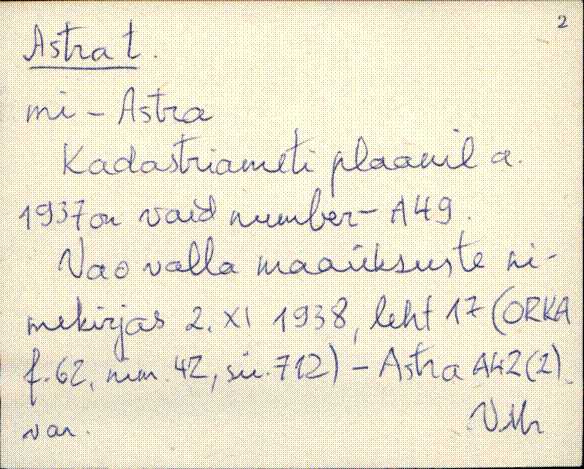 2
Astra t.
mi - Astra
Kadastriameti plaanil a.
1937 on vaid number - A49.
Vao valla maaüksuste ni-
mekirjas 2. XI 1938, leht 17 (ORKA
f. 62, nim. 42, sü. 712) - Astra A42(2).
var.